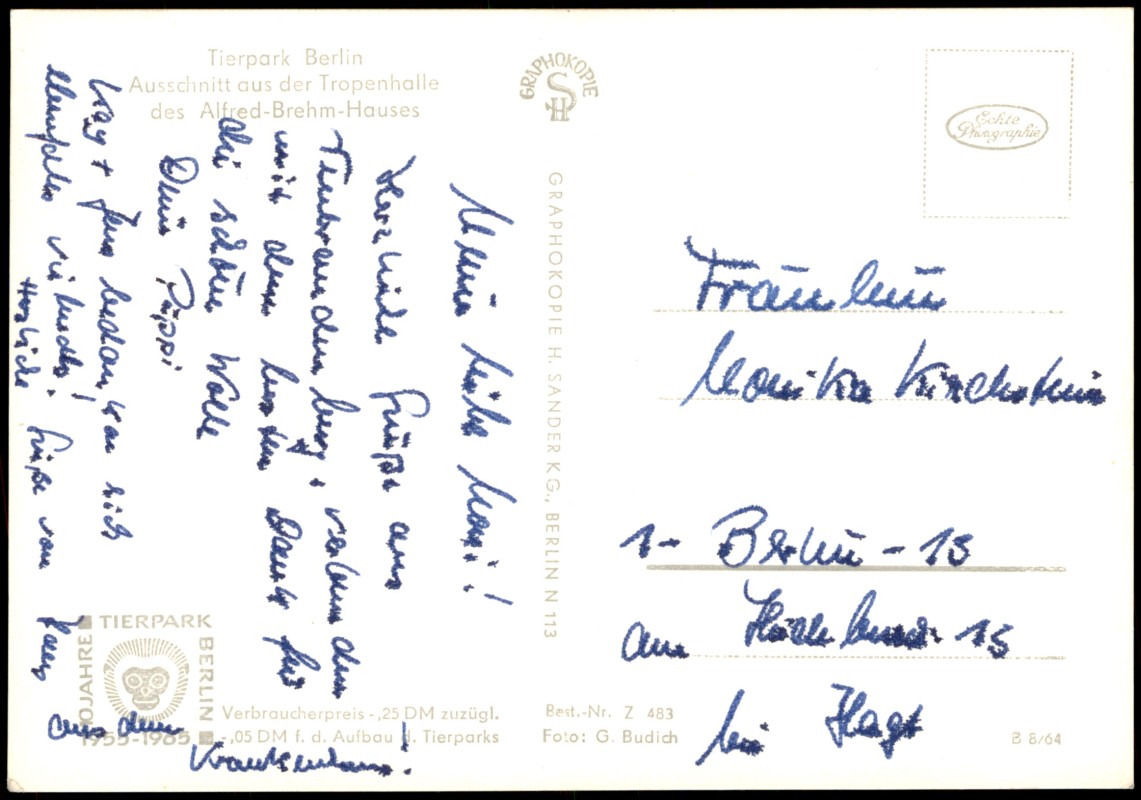 Tierpark Berlin
Ausschnitt aus der Tropenhalle
des Alfred-Brehm-Hauses
GRAPHOKOPIE
H
GRAPHOKOPIE H. SANDER KG., BERLIN N 113
Echte
Photographie
Meine liebe Moni!
Herzliche Grüße aus
verbunden
mit dem besten Dank für
die schöne Wolle
Deine Püppi
Kay + Jens bedanken sich
ebenfalls vielmals!
Herzliche Grüße von
aus dem
Krankenhaus!
Fräulein
Monika Kirchstein
1 - Berlin - 15
am 15
bei Hagt
JAHRE TIERPARK BERLIN
1955-1965
Verbraucherpreis -,25 DM zuzügl.
-,05 DM f. d. Aufbau d. Tierparks
Best.-Nr. Z 483
Foto: G. Budich
B 8/64